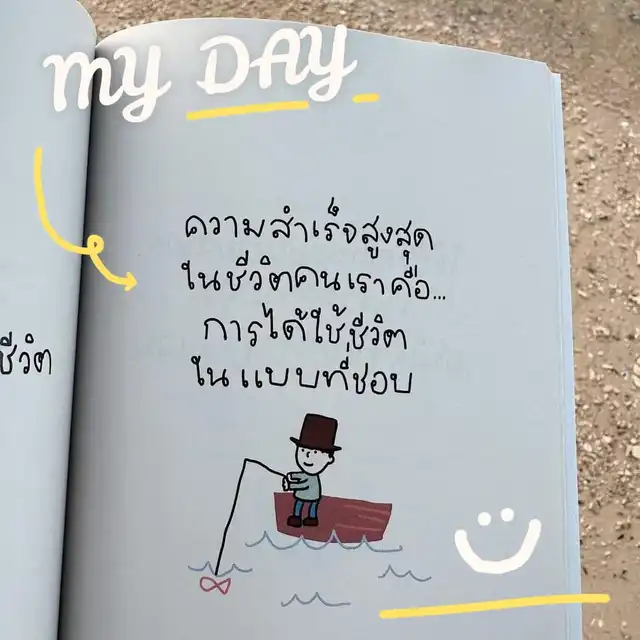 my DAY
ความสำเร็จสูงสุด
ในชีวิตคนเราคือ...
การได้ใช้ชีวิต
ในแบบที่ชอบ
ชีวิต